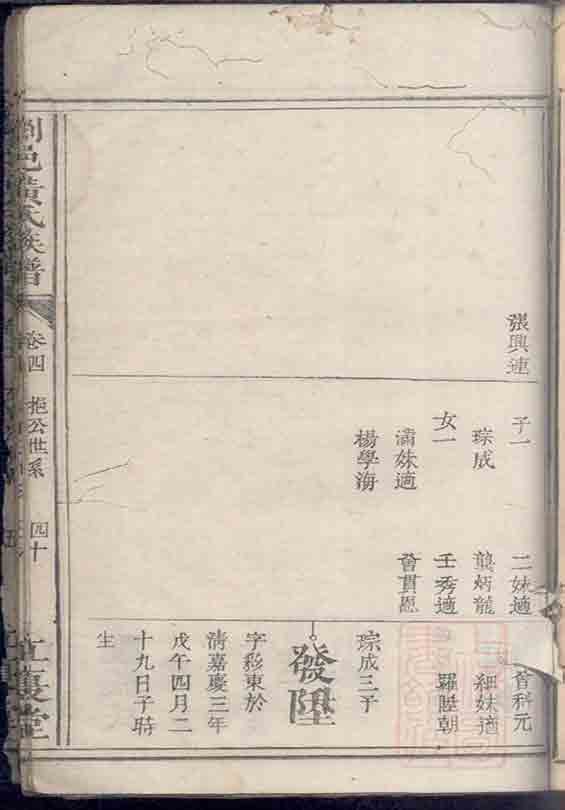 張興連
子一
琮成
女一
潚妹適
楊學海
二妹適
龔炳龍
壬秀適
曾貫恩
曾科元
細妹適
羅陞朝
琮成三子
發陞
字彩東於
清嘉慶三年
戊午四月二
十九日子時
生
瀏邑黃氏族譜
卷四
拒公世系
四十
江夏堂